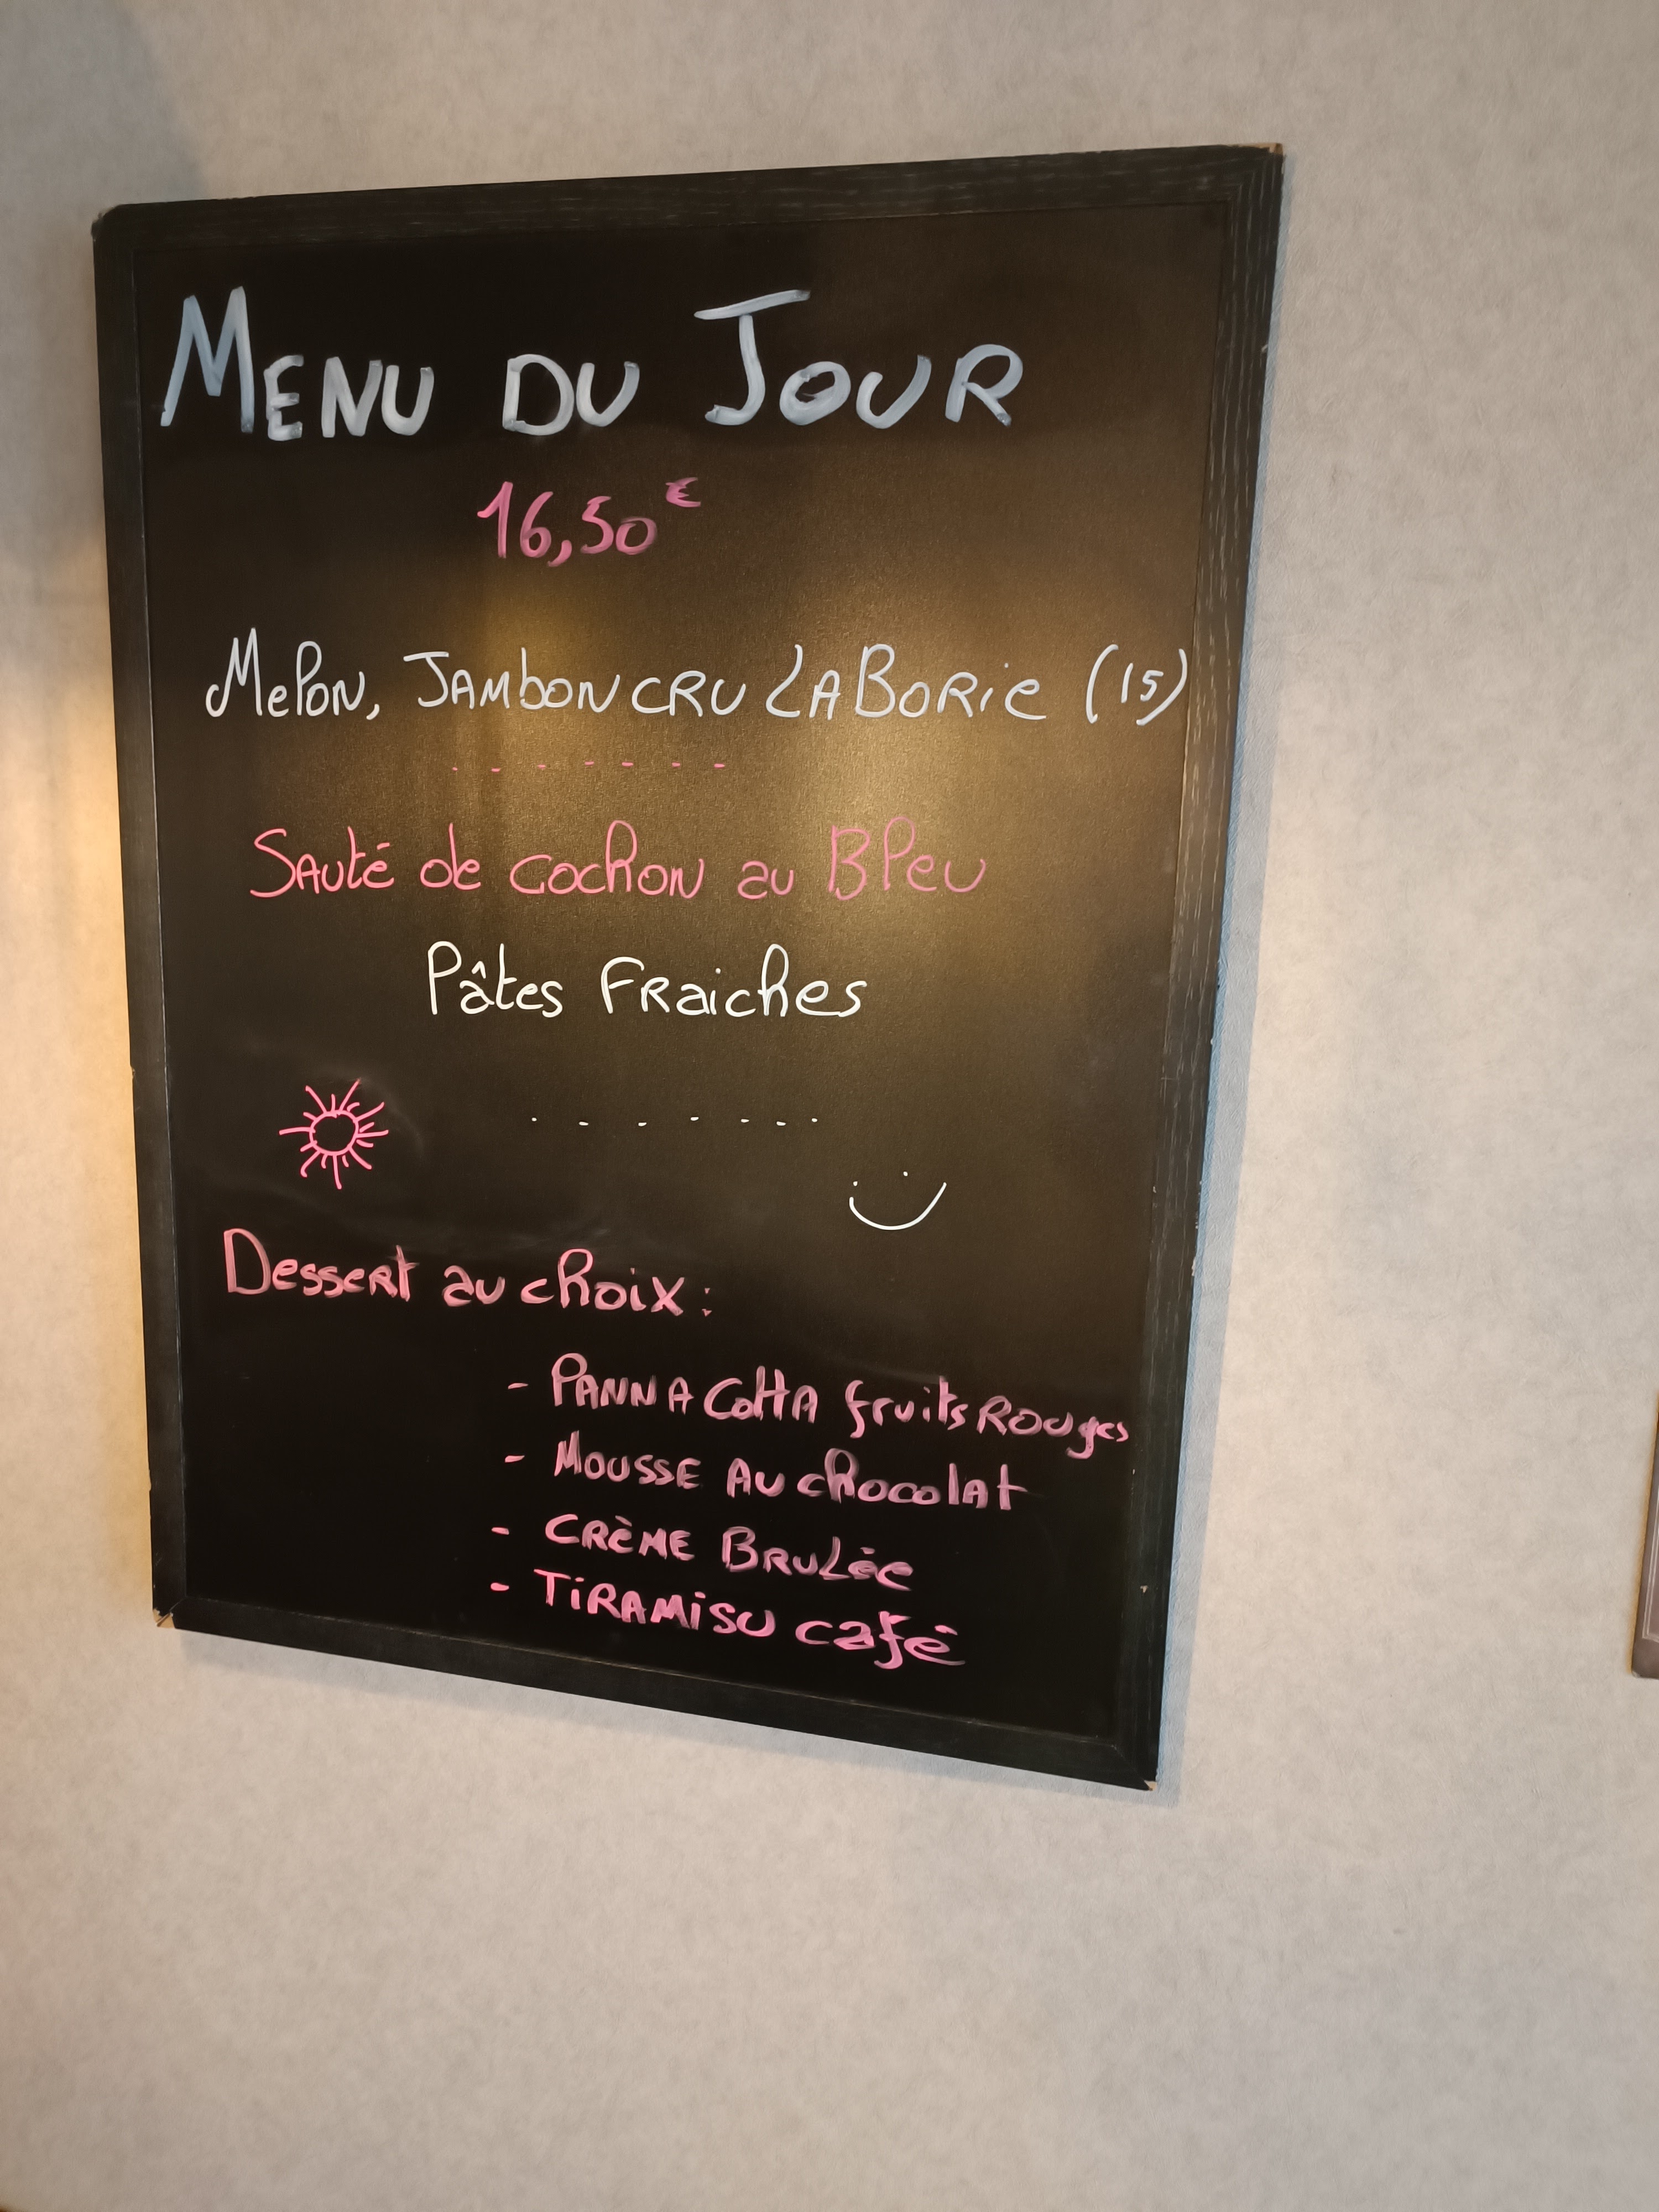 MENU DU JOUR
16,50€
Melon, JAMbON CRU LABORie (15)
SAuté de cochon au Bleu
Pâtes FRaiches
Dessert au choix :
- PANNA CottA fruits ROUges
- MOUSSE AU chocolat
- CRèME BRULée
- TiRAMiSU café